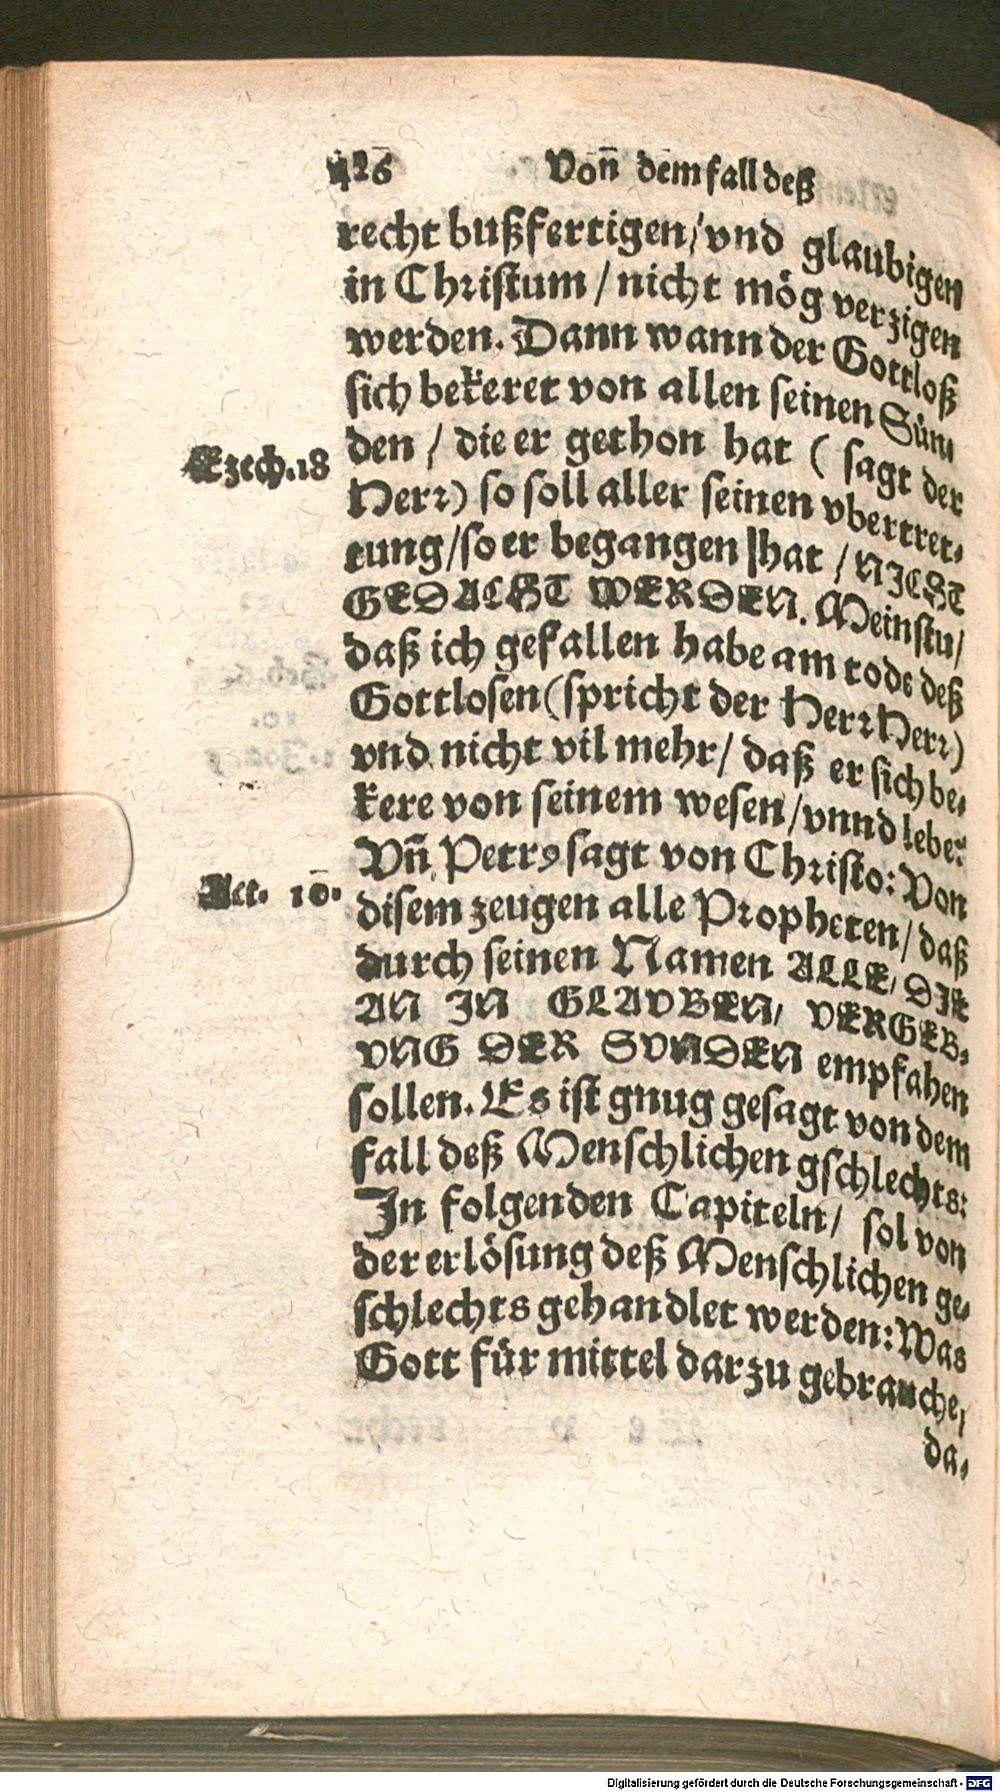 426 Vonn dem fall deß
recht bußfertigen/ vnd glaubigen
in Christum / nicht mög verzigen
werden. Dann wann der Gottloß
sich bekeret von allen seinen Sün⸗
den / die er gethon hat ( sagt der
Ezech. 18
Herr) so soll aller seinen vbertret⸗
tung/ so er begangen hat / NICHT
GEDACHT WERDEN. Meinstu/
daß ich gefallen habe am tode deß
Gottlosen (spricht der Herr Herr)
vnd nicht vil mehr/ daß er sich be⸗
kere von seinem wesen/ vnnd lebe?
Vñ Petrꝰ sagt von Christo: Von
Act. 10.
disem zeugen alle Propheten/ daß
durch seinen Namen ALLE, DIE
AN IN GLAVBEN, VERGEB⸗
VNG DER SVNDEN empfahen
sollen. Es ist gnug gesagt von dem
fall deß Menschlichen gschlechts:
In folgenden Capiteln/ sol von
der erlösung deß Menschlichen ge⸗
schlechts gehandlet werden: Was
Gott für mittel darzu gebrauche,
da⸗
Digitalisierung gefördert durch die Deutsche Forschungsgemeinschaft - DFG